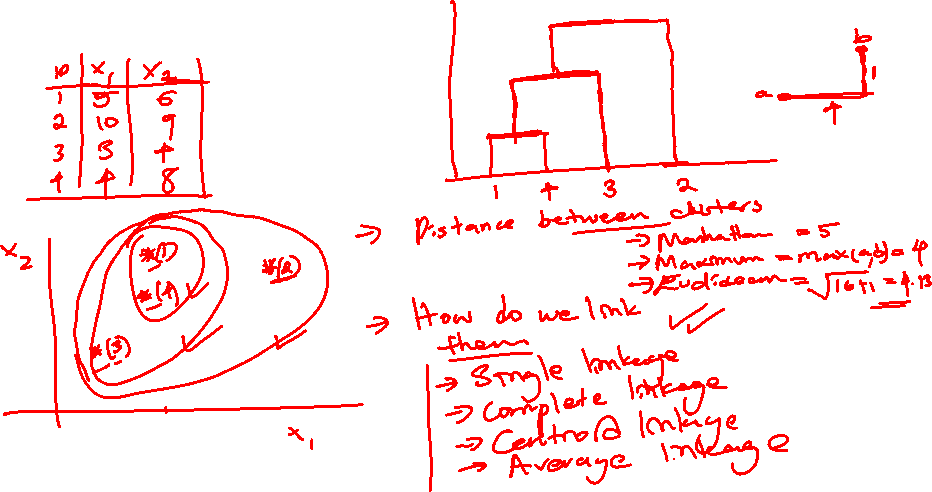 ID X1 X2
1 5 6
2 10 9
3 3 4
4 4 8
1 4 3 2
a b 1
4
X2
*(1)
*(4)
*(2)
*(3)
X1
→ Distance between clusters
→ Manhattan = 5
→ Maximum = max(a,b) = 4
→ Euclidean = √16+1 = 4.13
→ How do we link
them
→ Single linkage
→ Complete linkage
→ Centroid linkage
→ Average linkage